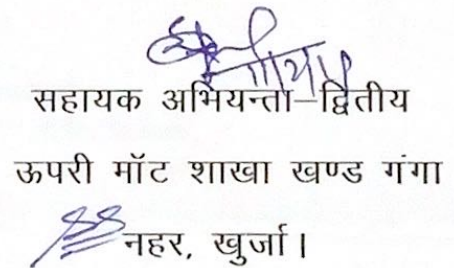 सहायक अभियन्ता–द्वितीय
ऊपरी मॉट शाखा खण्ड गंगा
नहर, खुर्जा।